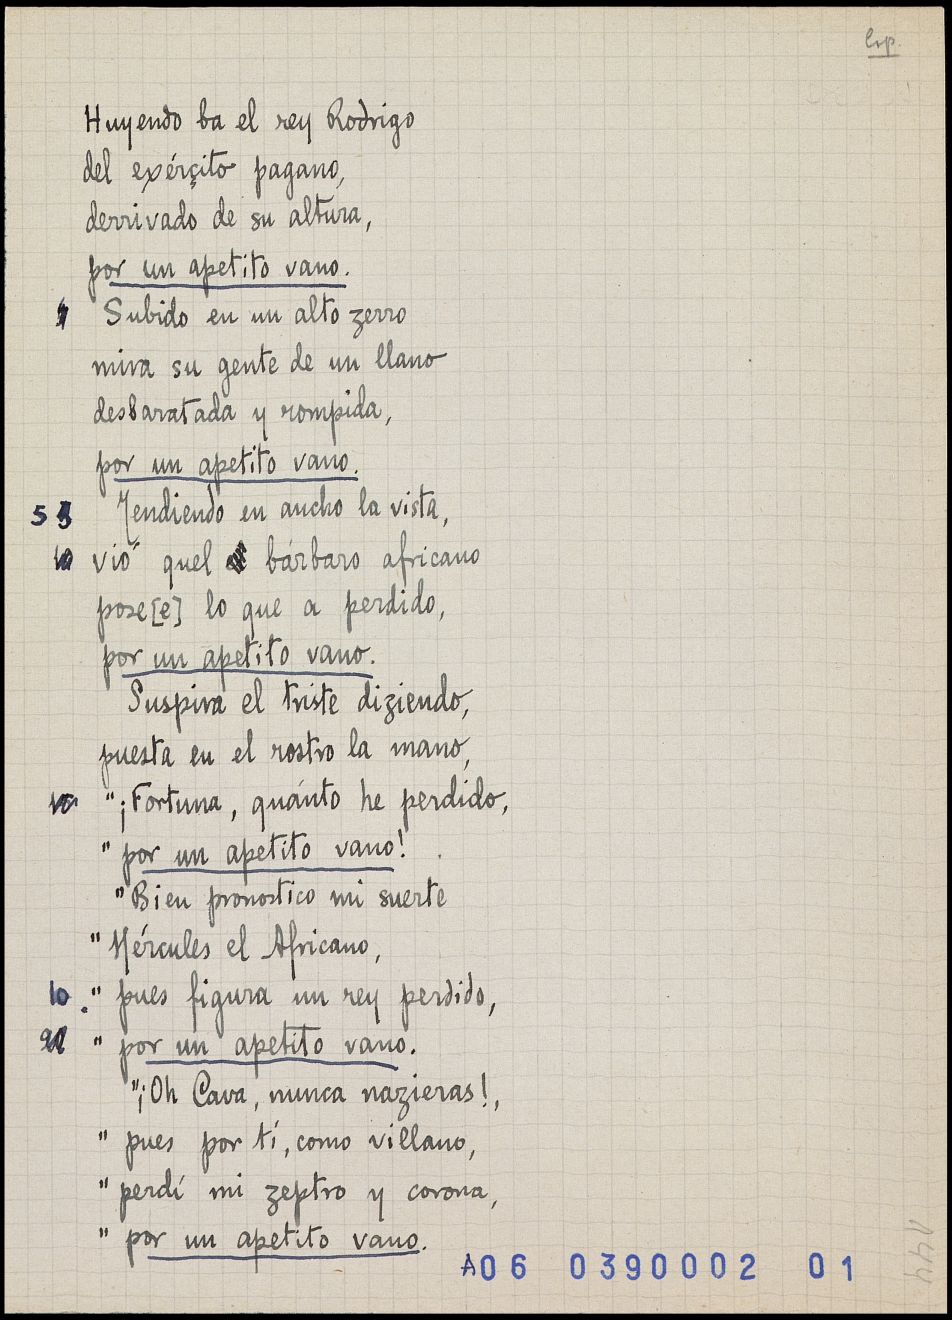 Huyendo ba el rey Rodrigo
del exérçito pagano,
derrivado de su altura,
por un apetito vano.
Subido en un alto zerro
mira su gente de un llano
desbaratada y rompida,
por un apetito vano.
5 Tendiendo en ancho la vista,
vió quel bárbaro africano
pose[e] lo que a perdido,
por un apetito vano.
Suspira el triste diziendo,
puesta en el rostro la mano,
"¡Fortuna, quánto he perdido,
" por un apetito vano!
"Bien pronostico mi suerte
"Hércules el Africano,
10 " pues figura un rey perdido,
" por un apetito vano.
"¡Oh Cava, nunca nazieras!,
" pues por tí, como villano,
" perdí mi zeptro y corona,
" por un apetito vano.
A06 0390002 01